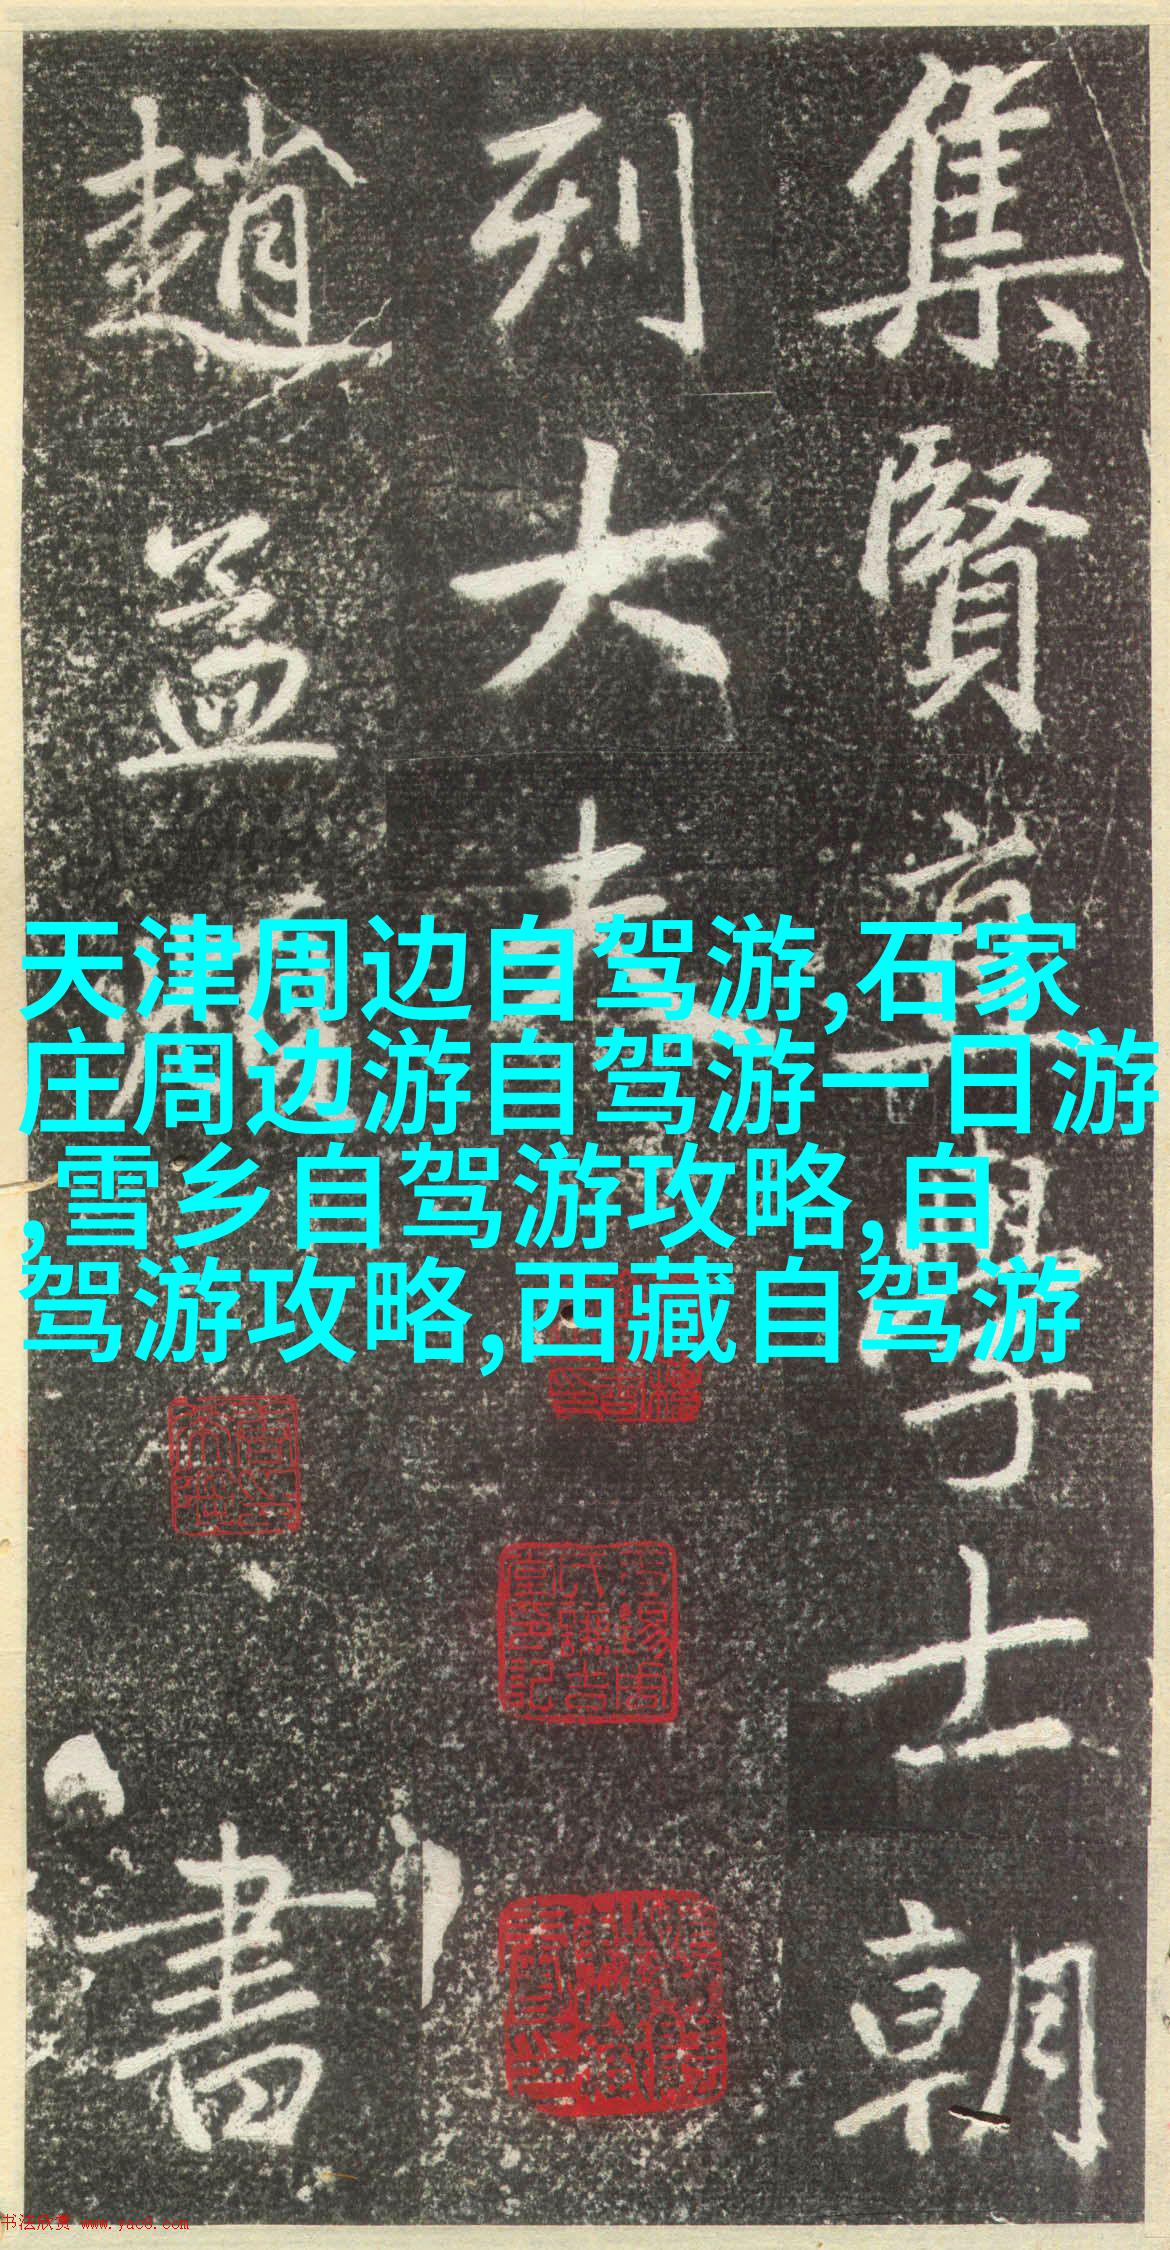 集賢直學士朝
列大夫
趙孟頫
書
天津周边自驾游,石家
庄周边游自驾游一日游
,雪乡自驾游攻略,自
驾游攻略,西藏自驾游
书法欣赏 www.yac8.com